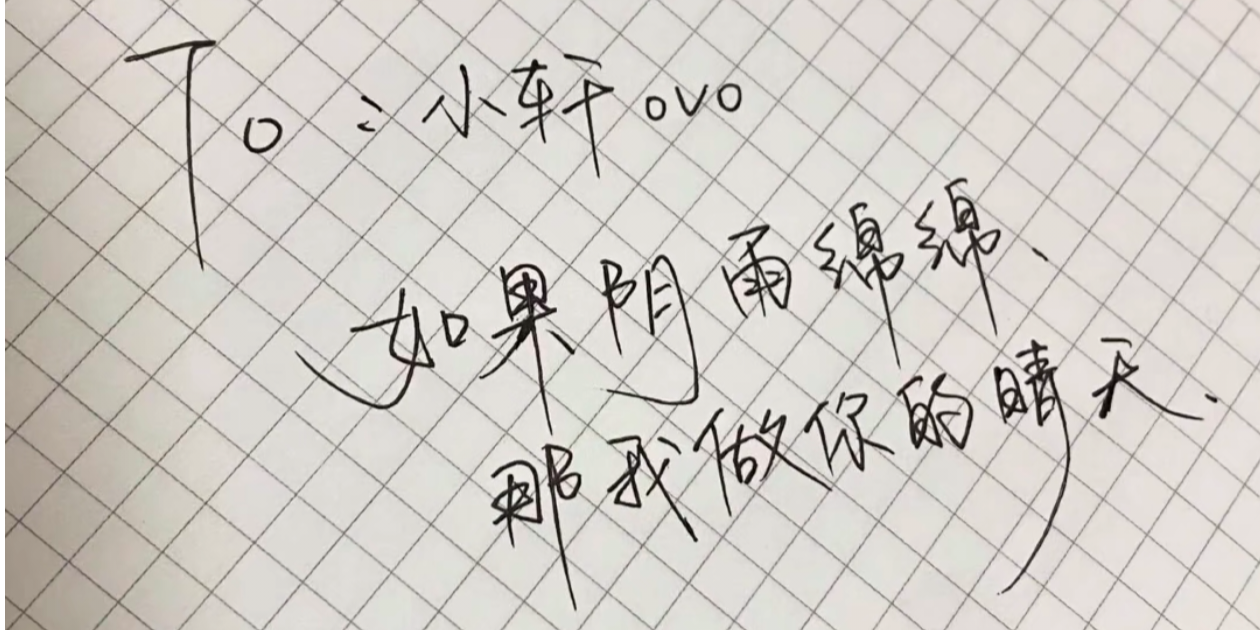 To：小轩 ovo
如果阴雨绵绵、
那我做你的晴天.